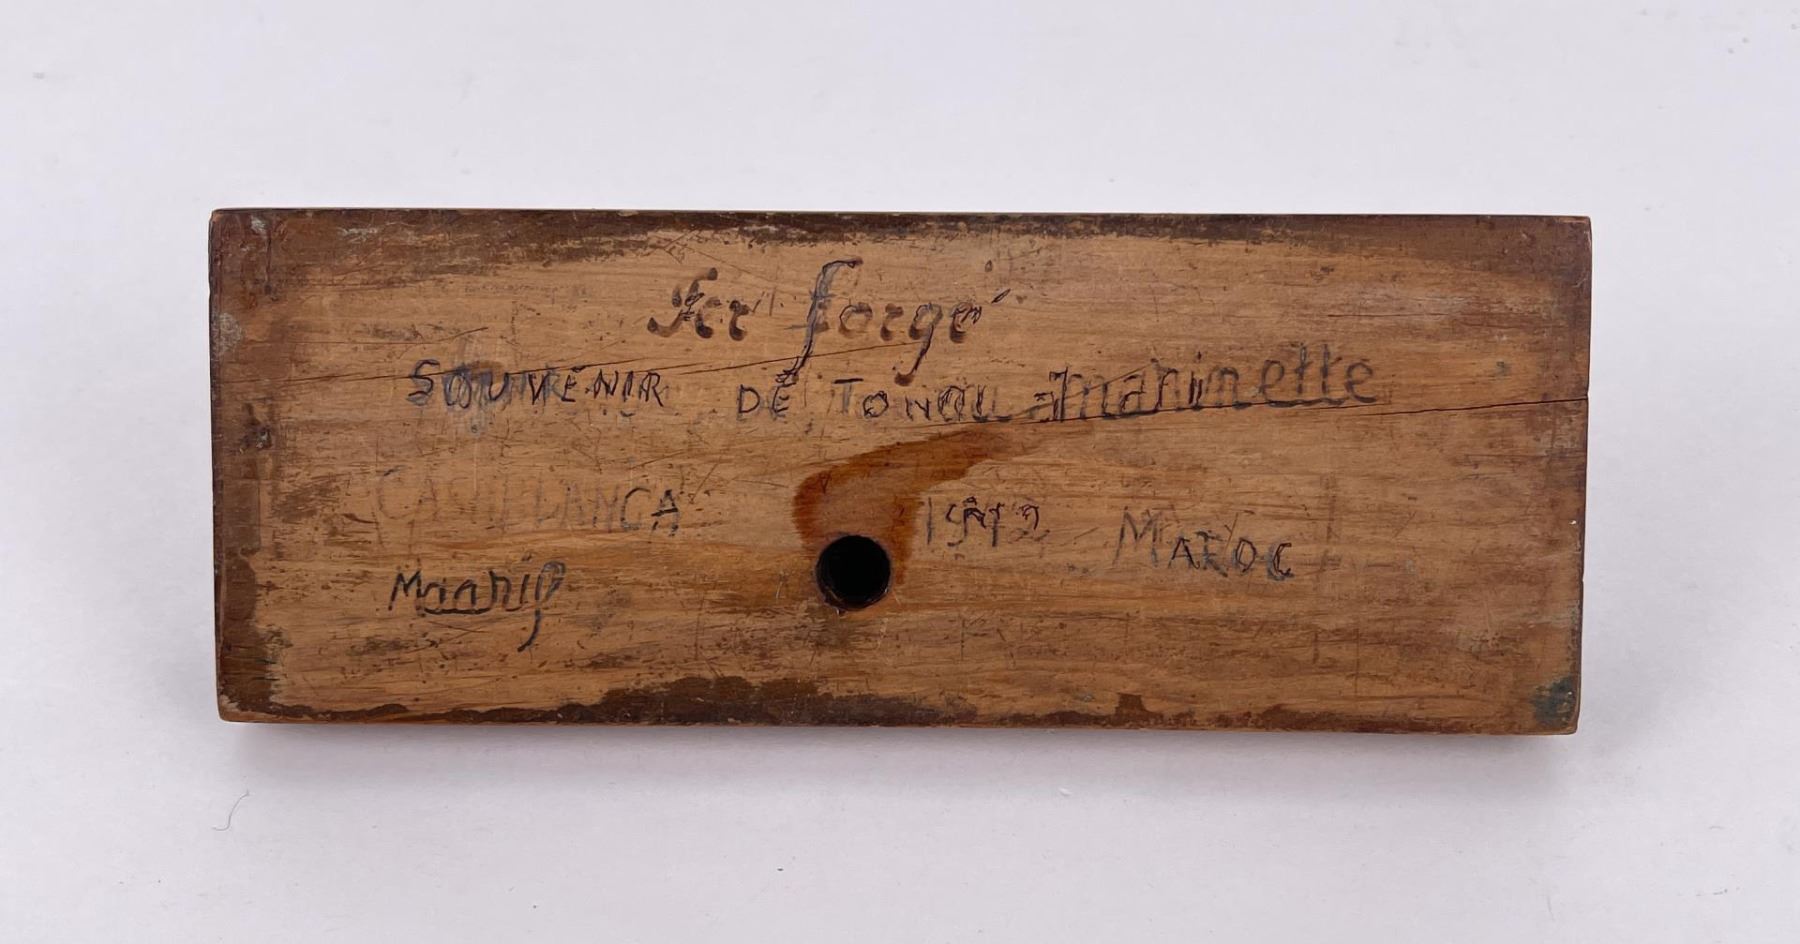 Fer forgé
SOUVRENIR DE TONOU à maninette
CASABLANCA 1912 MAROC
Maarif